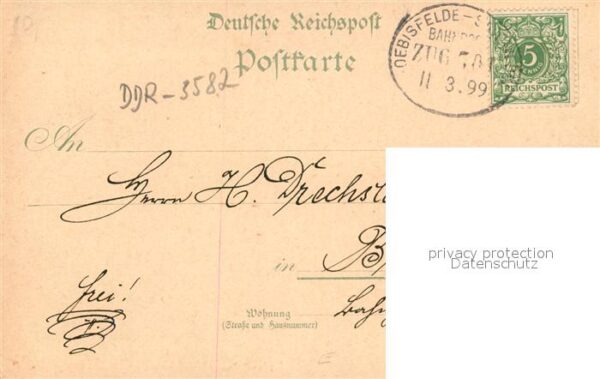 Deutsche Reichspost
Postkarte
OEBISFELDE-S
BAHNPOST
ZUG
11 3.99
5
REICHSPOST
DDR-3582
An
Herrn H. Drechsl
in B
frei!
Bahn
Wohnung
(Straße und Hausnummer)
privacy protection
Datenschutz